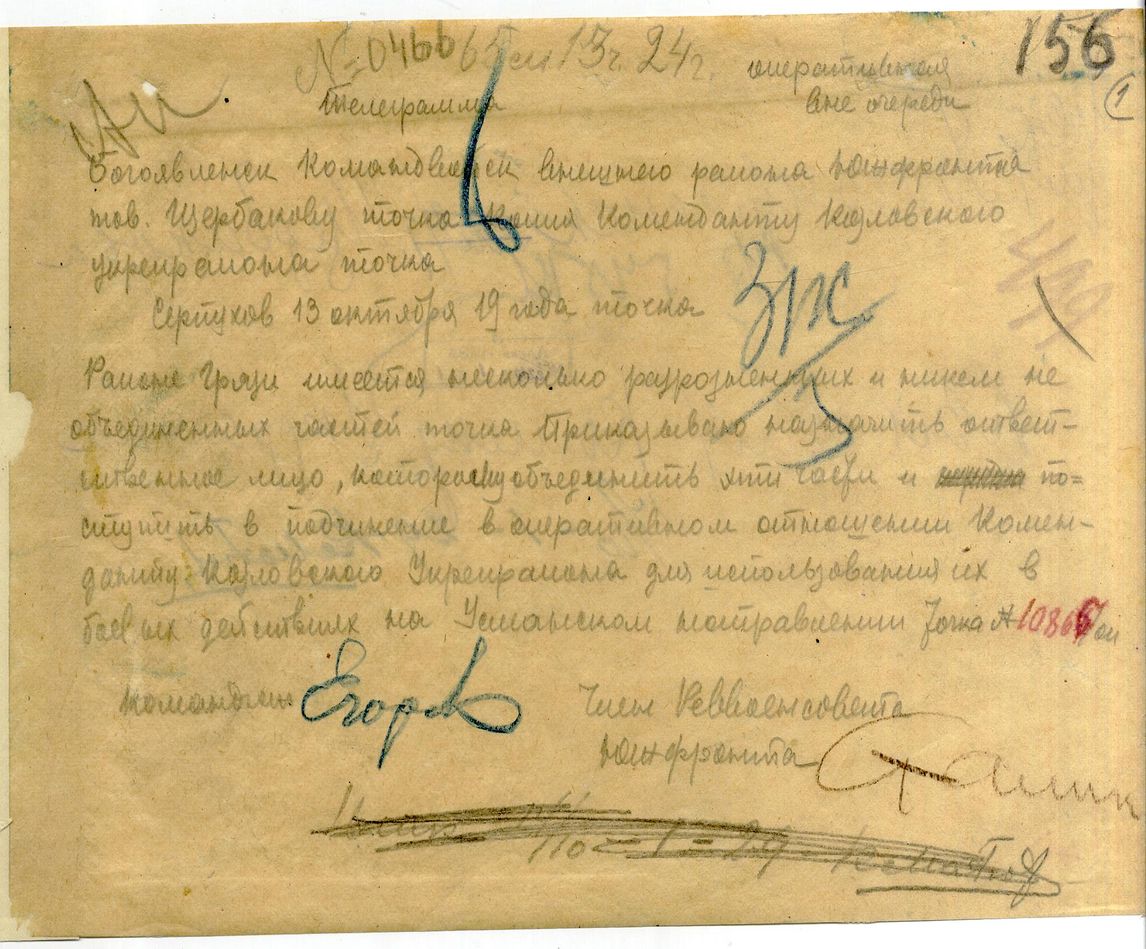 156
1
№ 0466 13 24
Телеграмма
оперативная
вне очереди
Богоявленск Командвойск внешнего района Южфронта
тов. Щербакову точка Копия Коменданту Козловского
укрепрайона точка
Серпухов 13 октября 19 года точка
ЗПС
499
Районе Грязи имеется несколько разрозненных и никем не
объединенных частей точка Приказываю назначить ответ-
ственное лицо, которому объединить эти части и по=
ступить в подчинение в оперативном отношении Комен-
данту Козловского Укрепрайона для использования их в
боевых действиях на Усманском направлении Точка № 10866/оп
Командюж Егоров
Член Реввоенсовета
Южфронта Сталин